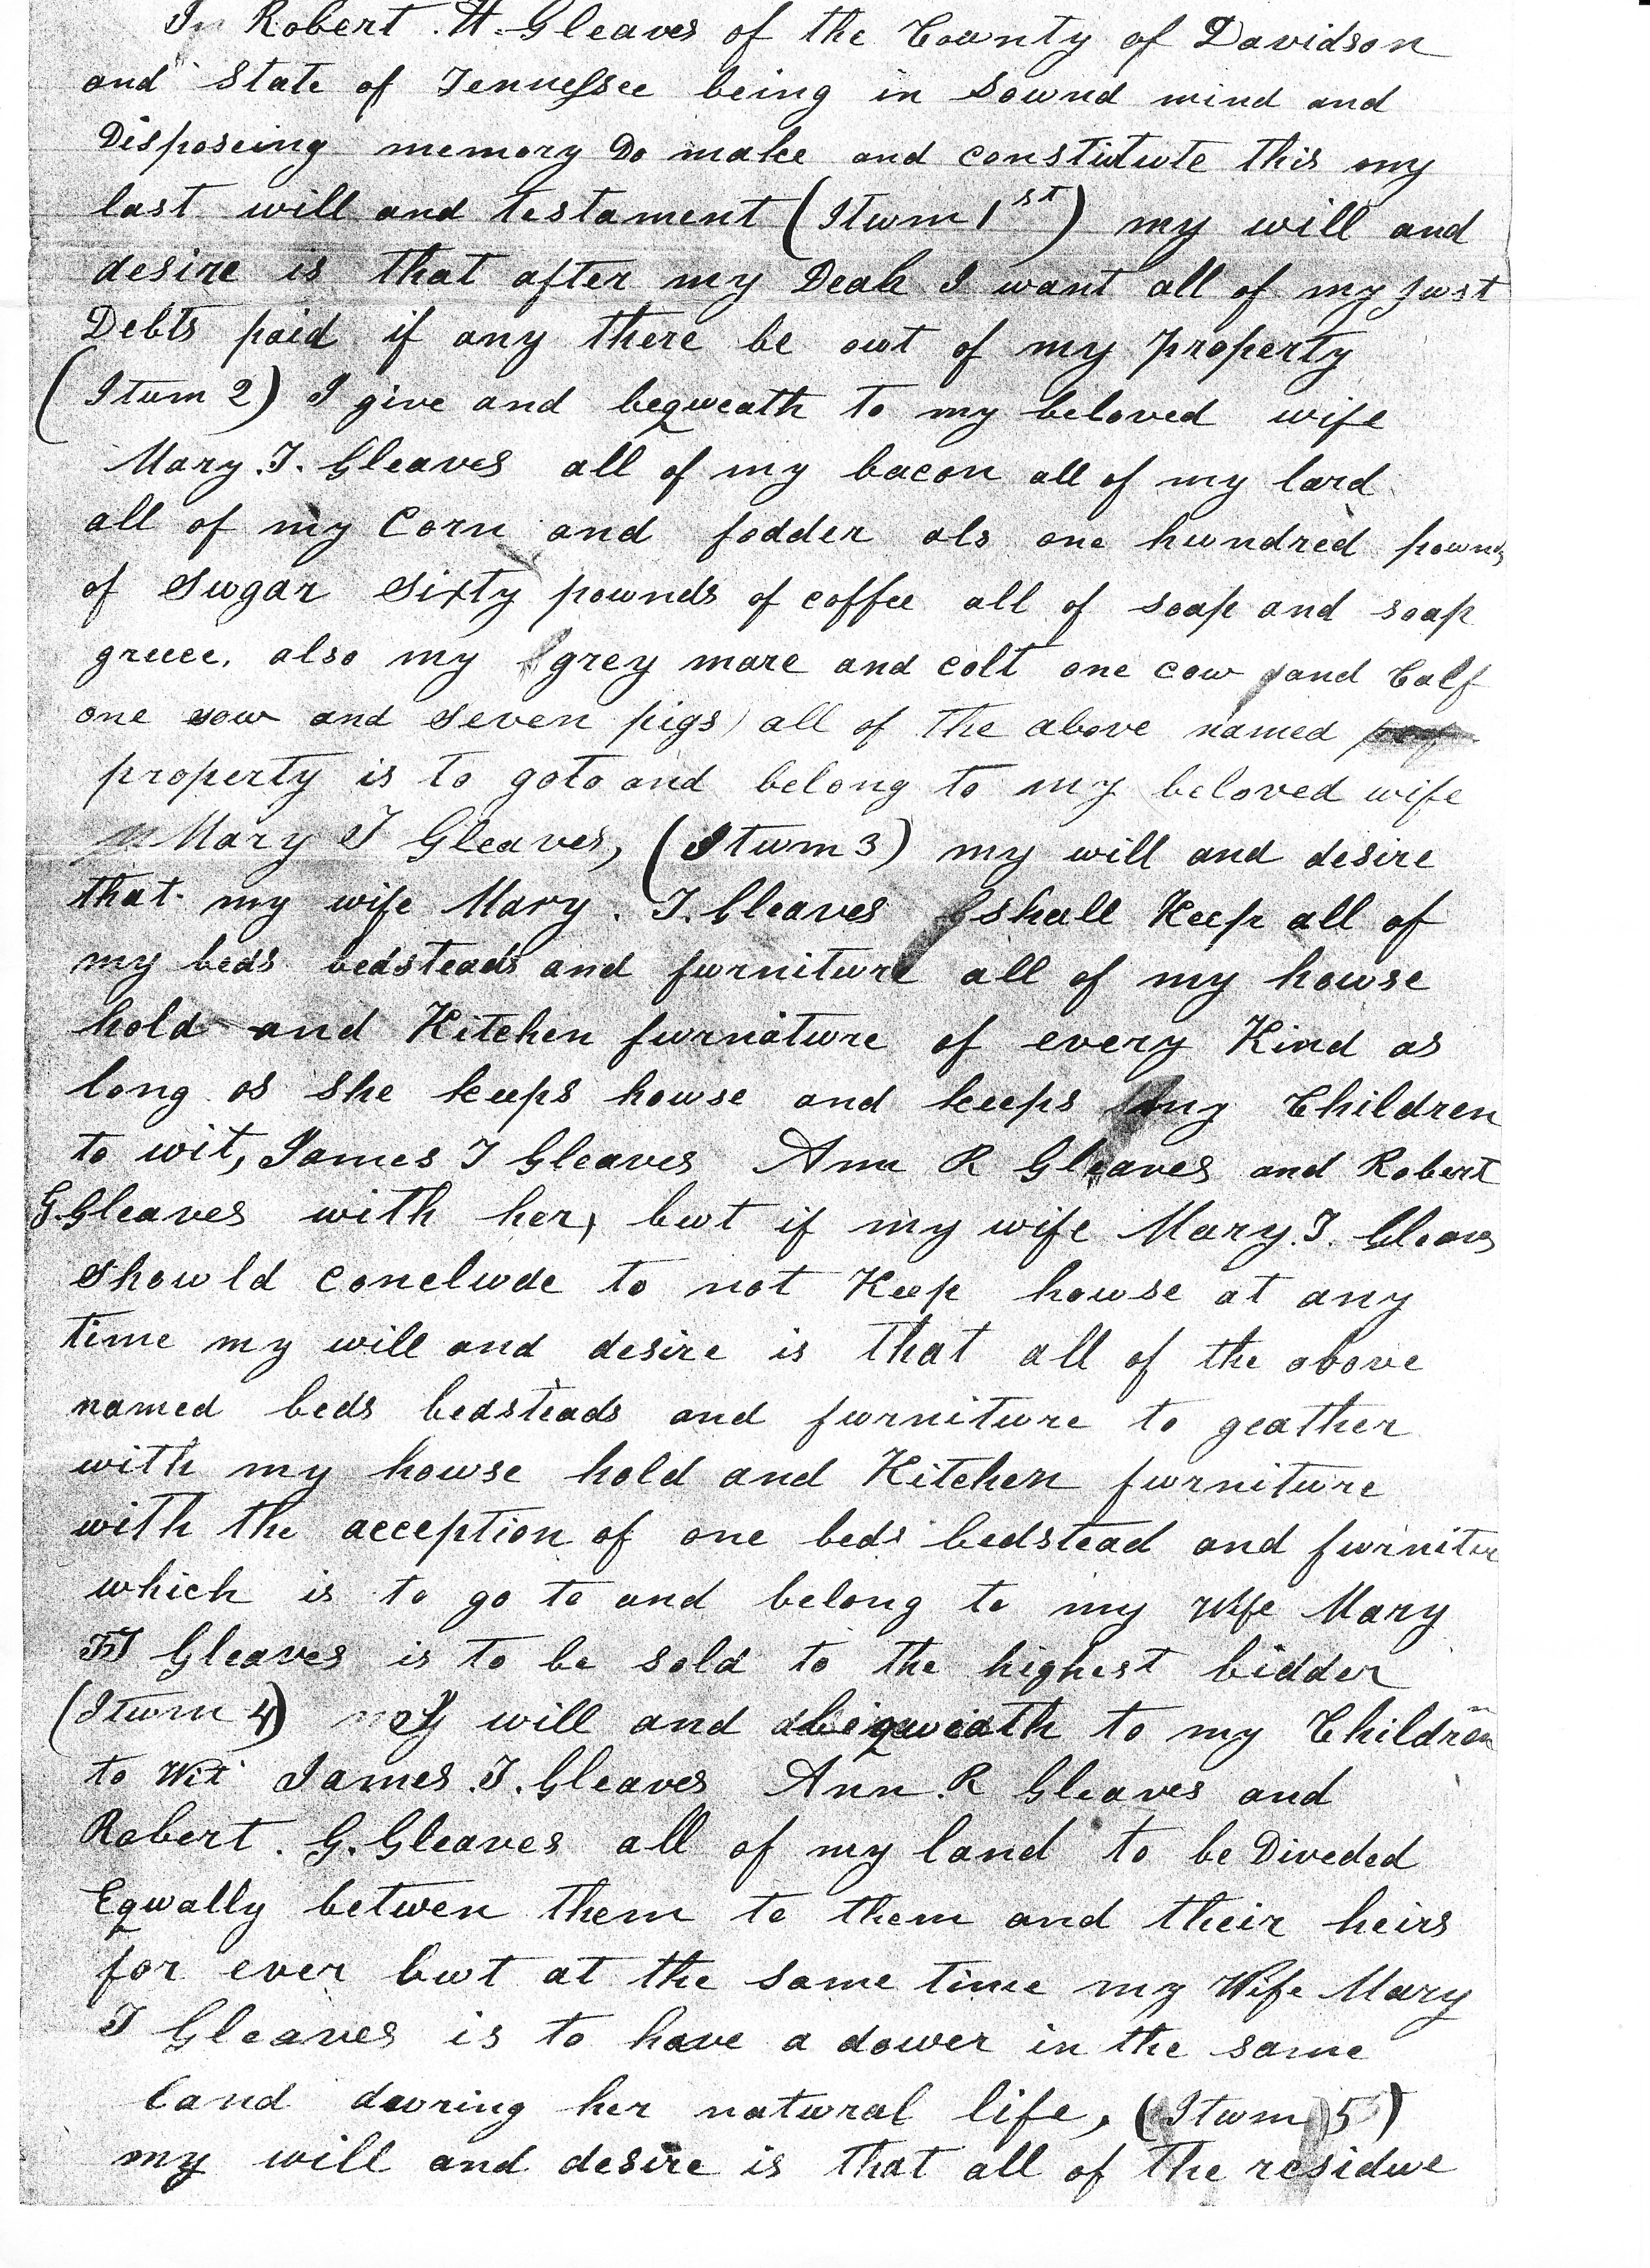 I Robert. H. Gleaves of the County of Davidson
and State of Tennessee being in Sound mind and
Disposeing memory Do make and constitute this my
last will and testament (Itum 1st) my will and
desire is that after my Deah I want all of my just
Debts paid if any there be out of my property
(Itum 2) I give and bequeath to my beloved wife
Mary. T. Gleaves all of my bacon all of my lard
all of my Corn and fodder als one hundred pounds
of Sugar Sixty pounds of coffee all of soap and soap
greece, also my grey mare and colt one cow and Calf
one sow and seven pigs) all of the above named
property is to goto and belong to my beloved wife
Mary T Gleaves, (Itum 3) my will and desire
that my wife Mary. T. Gleaves shall Keep all of
my beds bedsteads and furniture all of my house
hold and Kitchen furnature of every Kind as
long as she keeps house and keeps my Children
to wit, James T Gleaves Ann R Gleaves and Robert
G. Gleaves with her, but if my wife Mary. T. Gleaves
should conclude to not Keep house at any
time my will and desire is that all of the above
named beds bedsteads and furniture to geather
with my house hold and Kitchen furniture
with the acception of one beds bedstead and furniture
which is to go to and belong to my wife Mary
T Gleaves is to be sold to the highest bidder
(Itum 4) my will and bequeath to my Children
to Wit James. T. Gleaves Ann. R Gleaves and
Robert. G. Gleaves all of my land to be Diveded
Equally betwen them to them and their heirs
for ever but at the same time my Wife Mary
T Gleaves is to have a dower in the same
land during her natural life, (Itum 5)
my will and desire is that all of the residue